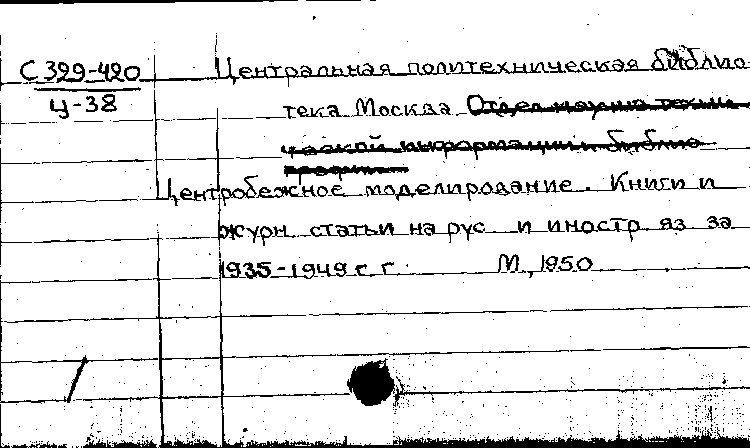 С 399-420
Ц-38
Центральная политехническая библио
тека Москва Отдел научно техни
ческой информации и библио
графии
Центробежное моделирование. Книги и
журн. статьи на рус и иностр. яз. за
1935-1949 г. г. М., 1950